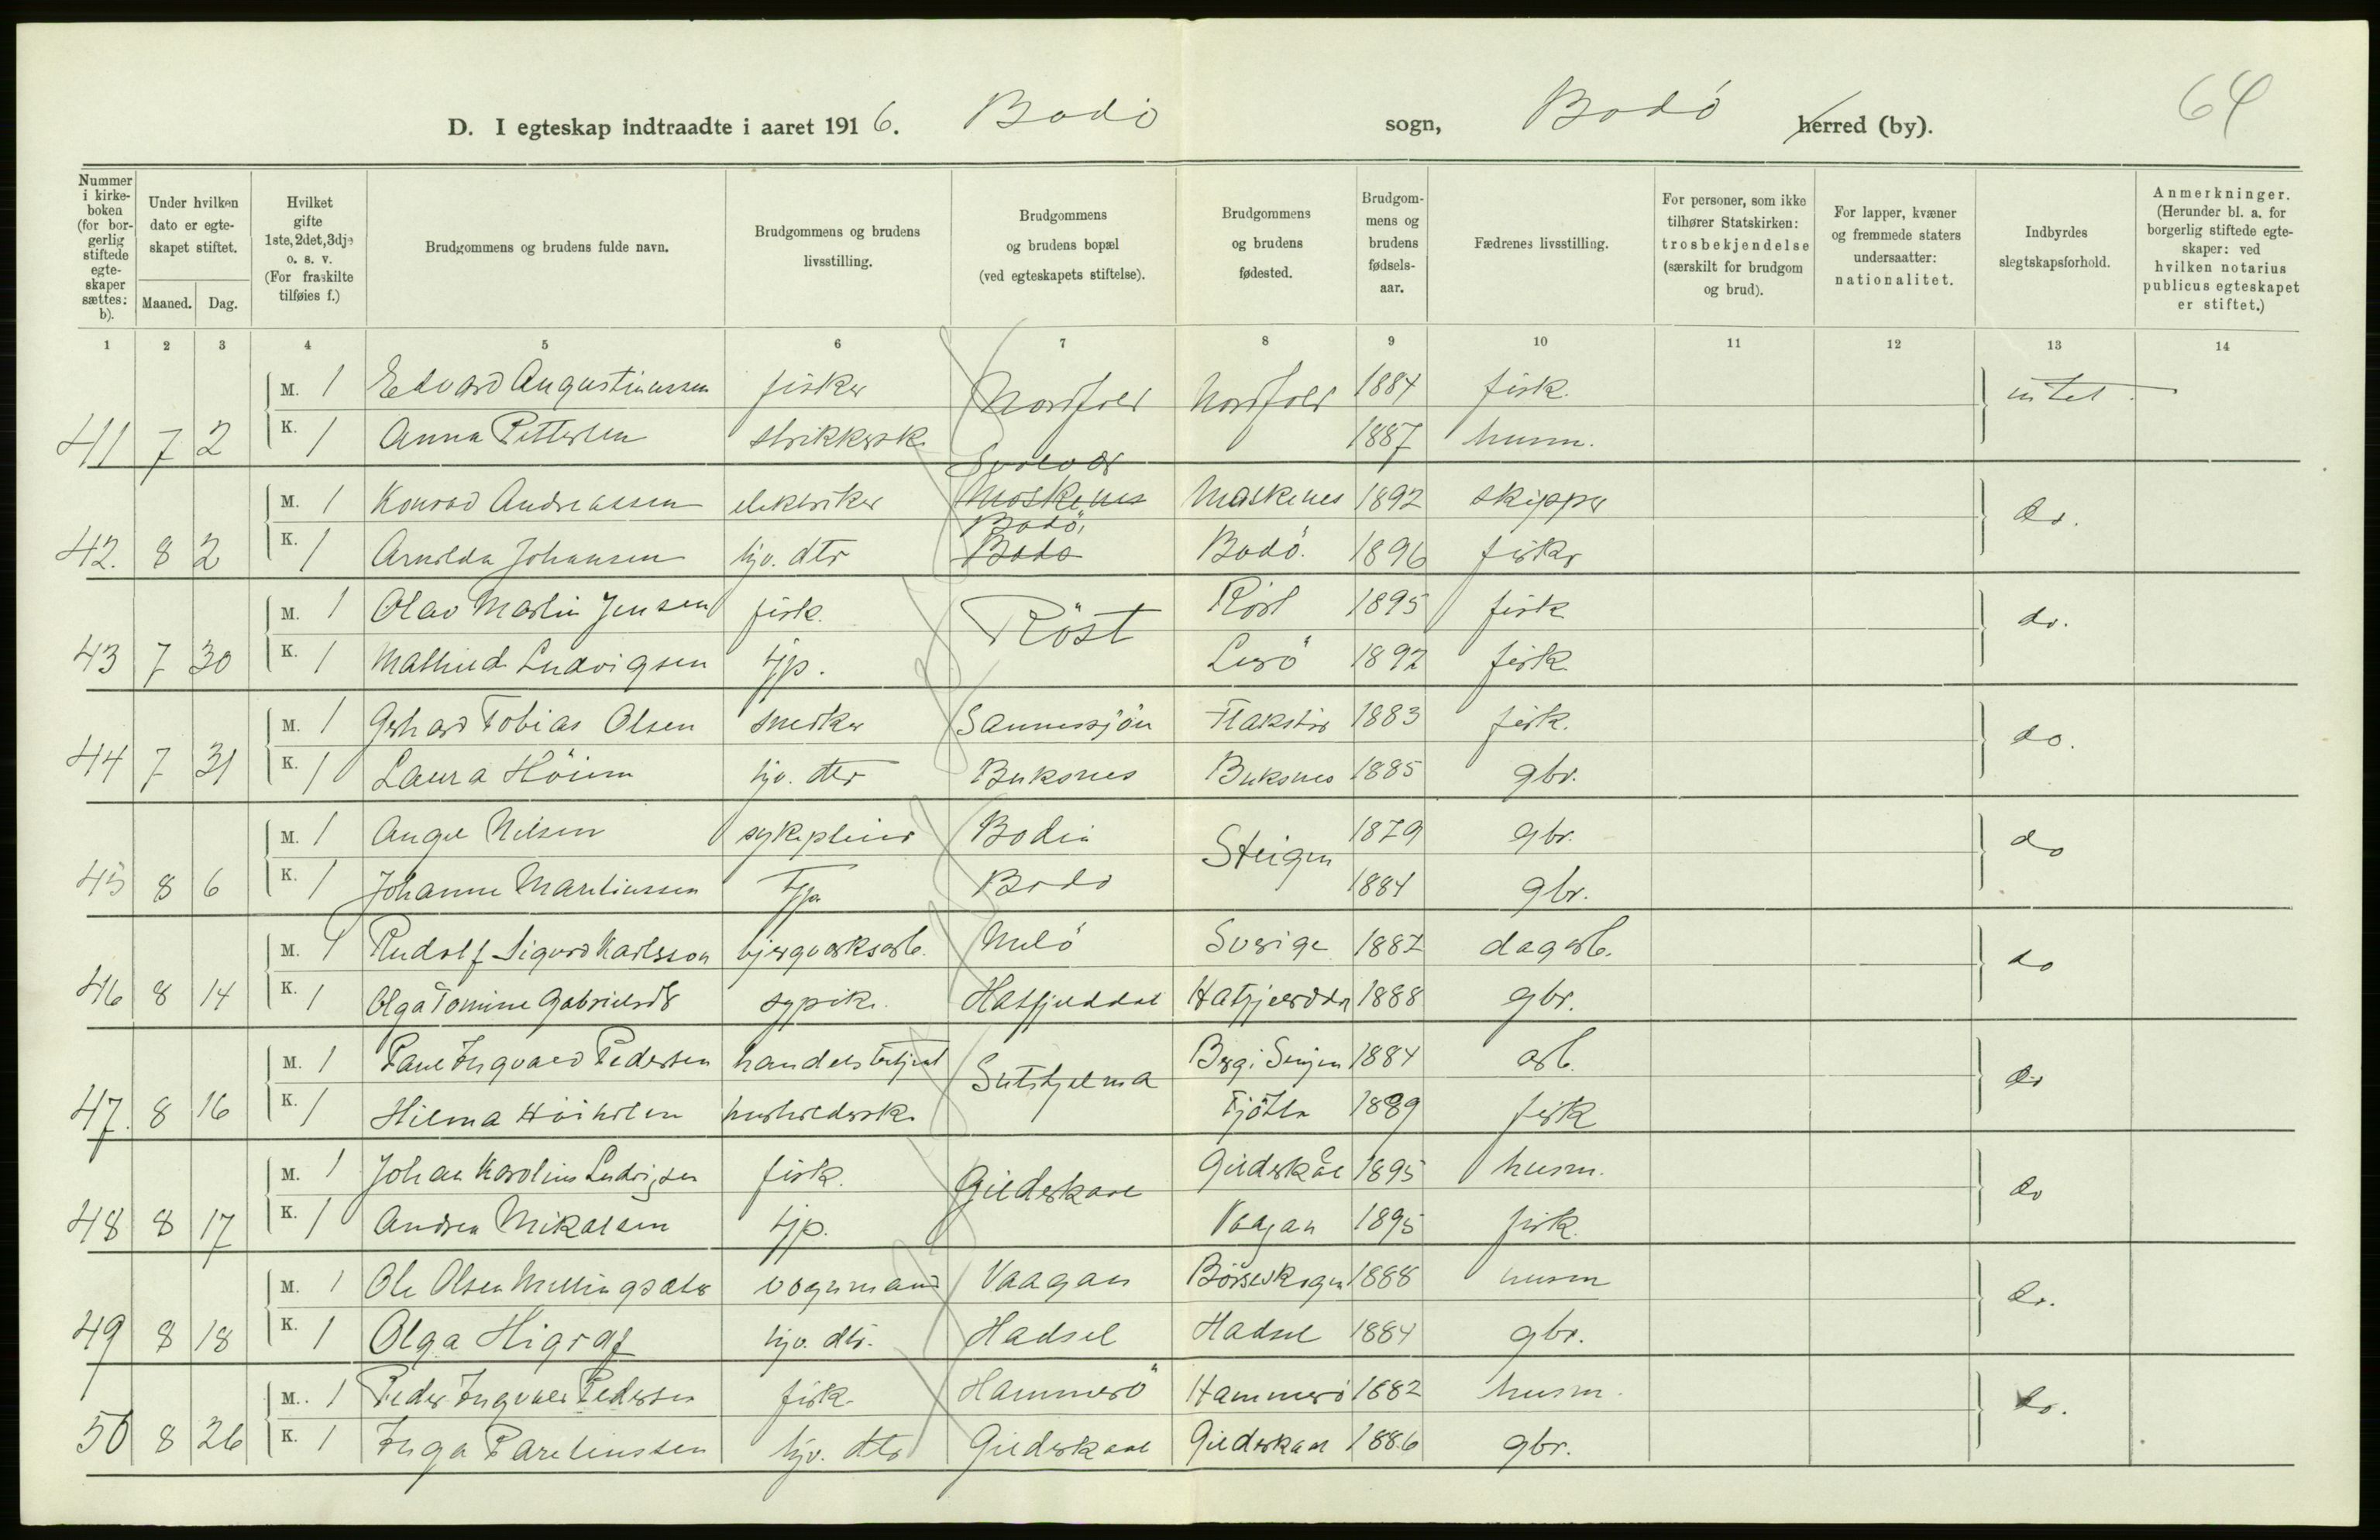 D. I egteskap indtraadte i aaret 1916. Bodö sogn, Bodö herred (by). 64
Nummer i kirkeboken (for borgerlig stiftede egteskaper sættes: b).
Under hvilken dato er egteskapet stiftet.
Maaned. Dag.
Hvilket gifte 1ste, 2det, 3dje o. s. v. (For fraskilte tilføies f.)
Brudgommens og brudens fulde navn.
Brudgommens og brudens livsstilling.
Brudgommens og brudens bopæl (ved egteskapets stiftelse).
Brudgommens og brudens fødested.
Brudgommens og brudens fødselsaar.
Fædrenes livsstilling.
For personer, som ikke tilhører Statskirken: trosbekjendelse (særskilt for brudgom og brud).
For lapper, kvæner og fremmede staters undersaatter: nationalitet.
Indbyrdes slegtskapsforhold.
Anmerkninger. (Herunder bl. a. for borgerlig stiftede egteskaper: ved hvilken notarius publicus egteskapet er stiftet.)
1 2 3 4 5 6 7 8 9 10 11 12 13 14
M. 1 Edvard Augustinussen fisker Nordfold Nordfold 1884 fisk. intet.
41 7 2 K. 1 Anna Pettersen strikkersk. 1887 husm.
Svolvær
M. 1 Konrad Andreassen elektriker Moskenes Moskenes 1892 skipper do.
Bodö
42. 8 2 K. 1 Arnolda Johansen hjv. dtr Bodö Bodö. 1896 fisker
M. 1 Olav Martin Jensen fisk. Röst Röst 1895 fisk do.
43 7 30 K. 1 Mathind Ludvigsen tjp. Lurö 1892 fisk
M. 1 Gerhard Tobias Olsen snedker Sannessjöen Flakstad 1883 fisk. do.
44 7 31 K. 1 Laura Höium hjv. dtr Buksnes Buksnes 1885 gbr.
M. 1 Angel Nilsen sykepleier Bodin Steigen 1879 gbr. do
45 8 6 K. 1 Johanne Mareliussen Tjp Bodö 1884 gbr.
M. 1 Rudolf Sigurd Karlsson bjergverksarb. Melö Sverige 1887 dagarb. do
46 8 14 K. 1 Olga Tomine Gabrielsdtr sypike. Hatfjelddal Hatfjelddal 1888 gbr.
M. 1 Paul Ingvald Pedersen handelsbetjent Sulitjelma Berg i Senjen 1884 arb. do
47. 8 16 K. 1 Hilma Höiholm husholdersk. Tjötta 1889 fisk
M. 1 Johan Karolius Ludvigsen fisk. Gildeskaal Gildeskål 1895 husm. do
48 8 17 K. 1 Andrea Mikalsen tjp. Vaagan 1895 fisk.
M. 1 Ole Olsen vognmand Vaagan Börseskogn 1888 husm do.
49 8 18 K. 1 Olga Higraf hjv. dtr. Hadsel Hadsel 1884 gbr.
M. 1 Peder Ingvald Pedersen fisk. Hammerö Hammerö 1882 husm. do.
50 8 26 K. 1 Inga Pareliussen hjv. dtr Gildeskaal Gildeskaal 1886 gbr.